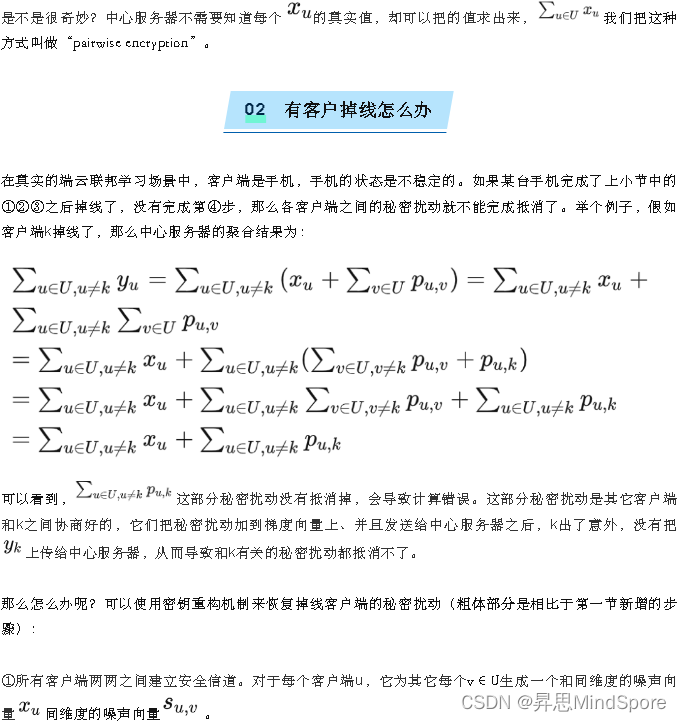 是不是很奇妙？中心服务器不需要知道每个 x_u 的真实值，却可以把的值求出来， ∑_{u∈U} x_u 我们把这种
方式叫做“pairwise encryption”。
02 有客户掉线怎么办
在真实的端云联邦学习场景中，客户端是手机，手机的状态是不稳定的。如果某台手机完成了上小节中的
①②③之后掉线了，没有完成第④步，那么各客户端之间的秘密扰动就不能完成抵消了。举个例子，假如
客户端k掉线了，那么中心服务器的聚合结果为：
∑_{u∈U,u≠k} y_u = ∑_{u∈U,u≠k} (x_u + ∑_{v∈U} p_{u,v}) = ∑_{u∈U,u≠k} x_u +
∑_{u∈U,u≠k} ∑_{v∈U} p_{u,v}
= ∑_{u∈U,u≠k} x_u + ∑_{u∈U,u≠k} (∑_{v∈U,v≠k} p_{u,v} + p_{u,k})
= ∑_{u∈U,u≠k} x_u + ∑_{u∈U,u≠k} ∑_{v∈U,v≠k} p_{u,v} + ∑_{u∈U,u≠k} p_{u,k}
= ∑_{u∈U,u≠k} x_u + ∑_{u∈U,u≠k} p_{u,k}
可以看到， ∑_{u∈U,u≠k} p_{u,k} 这部分秘密扰动没有抵消掉，会导致计算错误。这部分秘密扰动是其它客户端
和k之间协商好的，它们把秘密扰动加到梯度向量上、并且发送给中心服务器之后，k出了意外，没有把
y_k 上传给中心服务器，从而导致和k有关的秘密扰动都抵消不了。
那么怎么办呢？可以使用密钥重构机制来恢复掉线客户端的秘密扰动（粗体部分是相比于第一节新增的步
骤）：
①所有客户端两两之间建立安全信道。对于每个客户端u，它为其它每个v∈U生成一个和同维度的噪声向
量 x_u 同维度的噪声向量 s_{u,v} 。
CSDN @昇思MindSpore